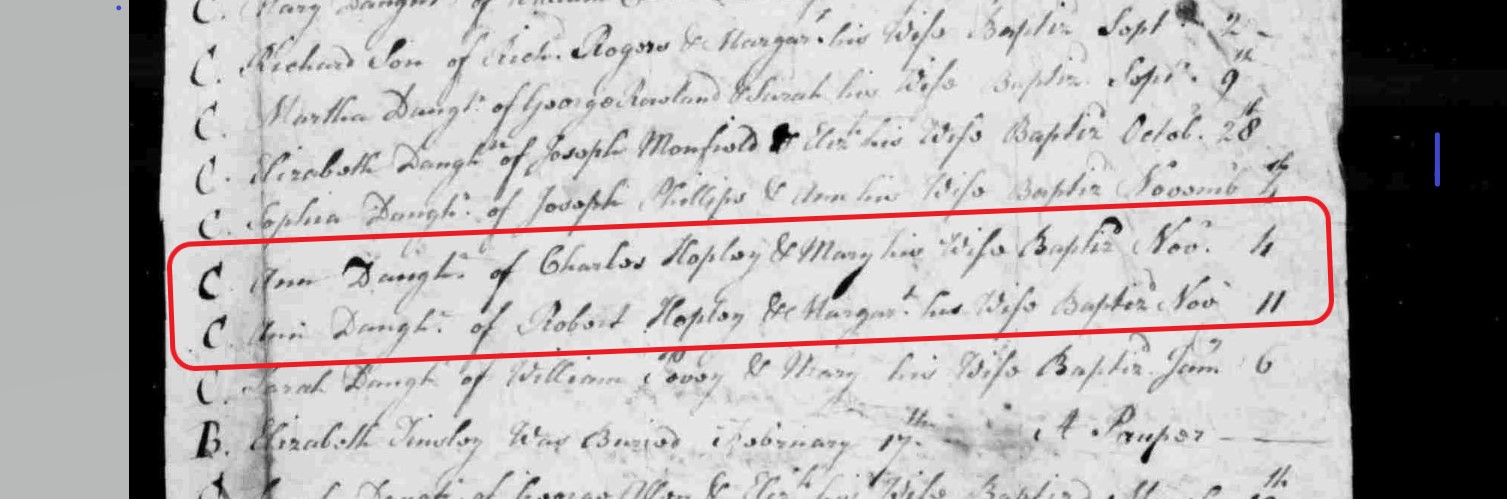 C. Mary Daught. of William
C. Richard Son of Rich. Rogers & Margart. his Wife Baptiz Sept. 2
C. Martha Daught. of George Rowland & Sarah his Wife Baptiz. Sept. 9th
C. Elizabeth Daught. of Joseph Monfield & Eliz. his Wife Baptiz Octob. 28th
C. Sophia Daught. of Joseph Phillips & Ann his Wife Baptiz Novemb 4th
C. Ann Daught. of Charles Hopley & Mary his Wife Baptiz Nov. 4
C. Ann Daught. of Robert Hopley & Margart. his Wife Baptiz Nov 11
C. Sarah Daught of William Povey & Mary his Wife Baptiz. Jan. 6
B. Elizabeth Tinsley Was Buried February 17th. A Pauper
Daught of George Allen & Eliz. his Wife Baptiz